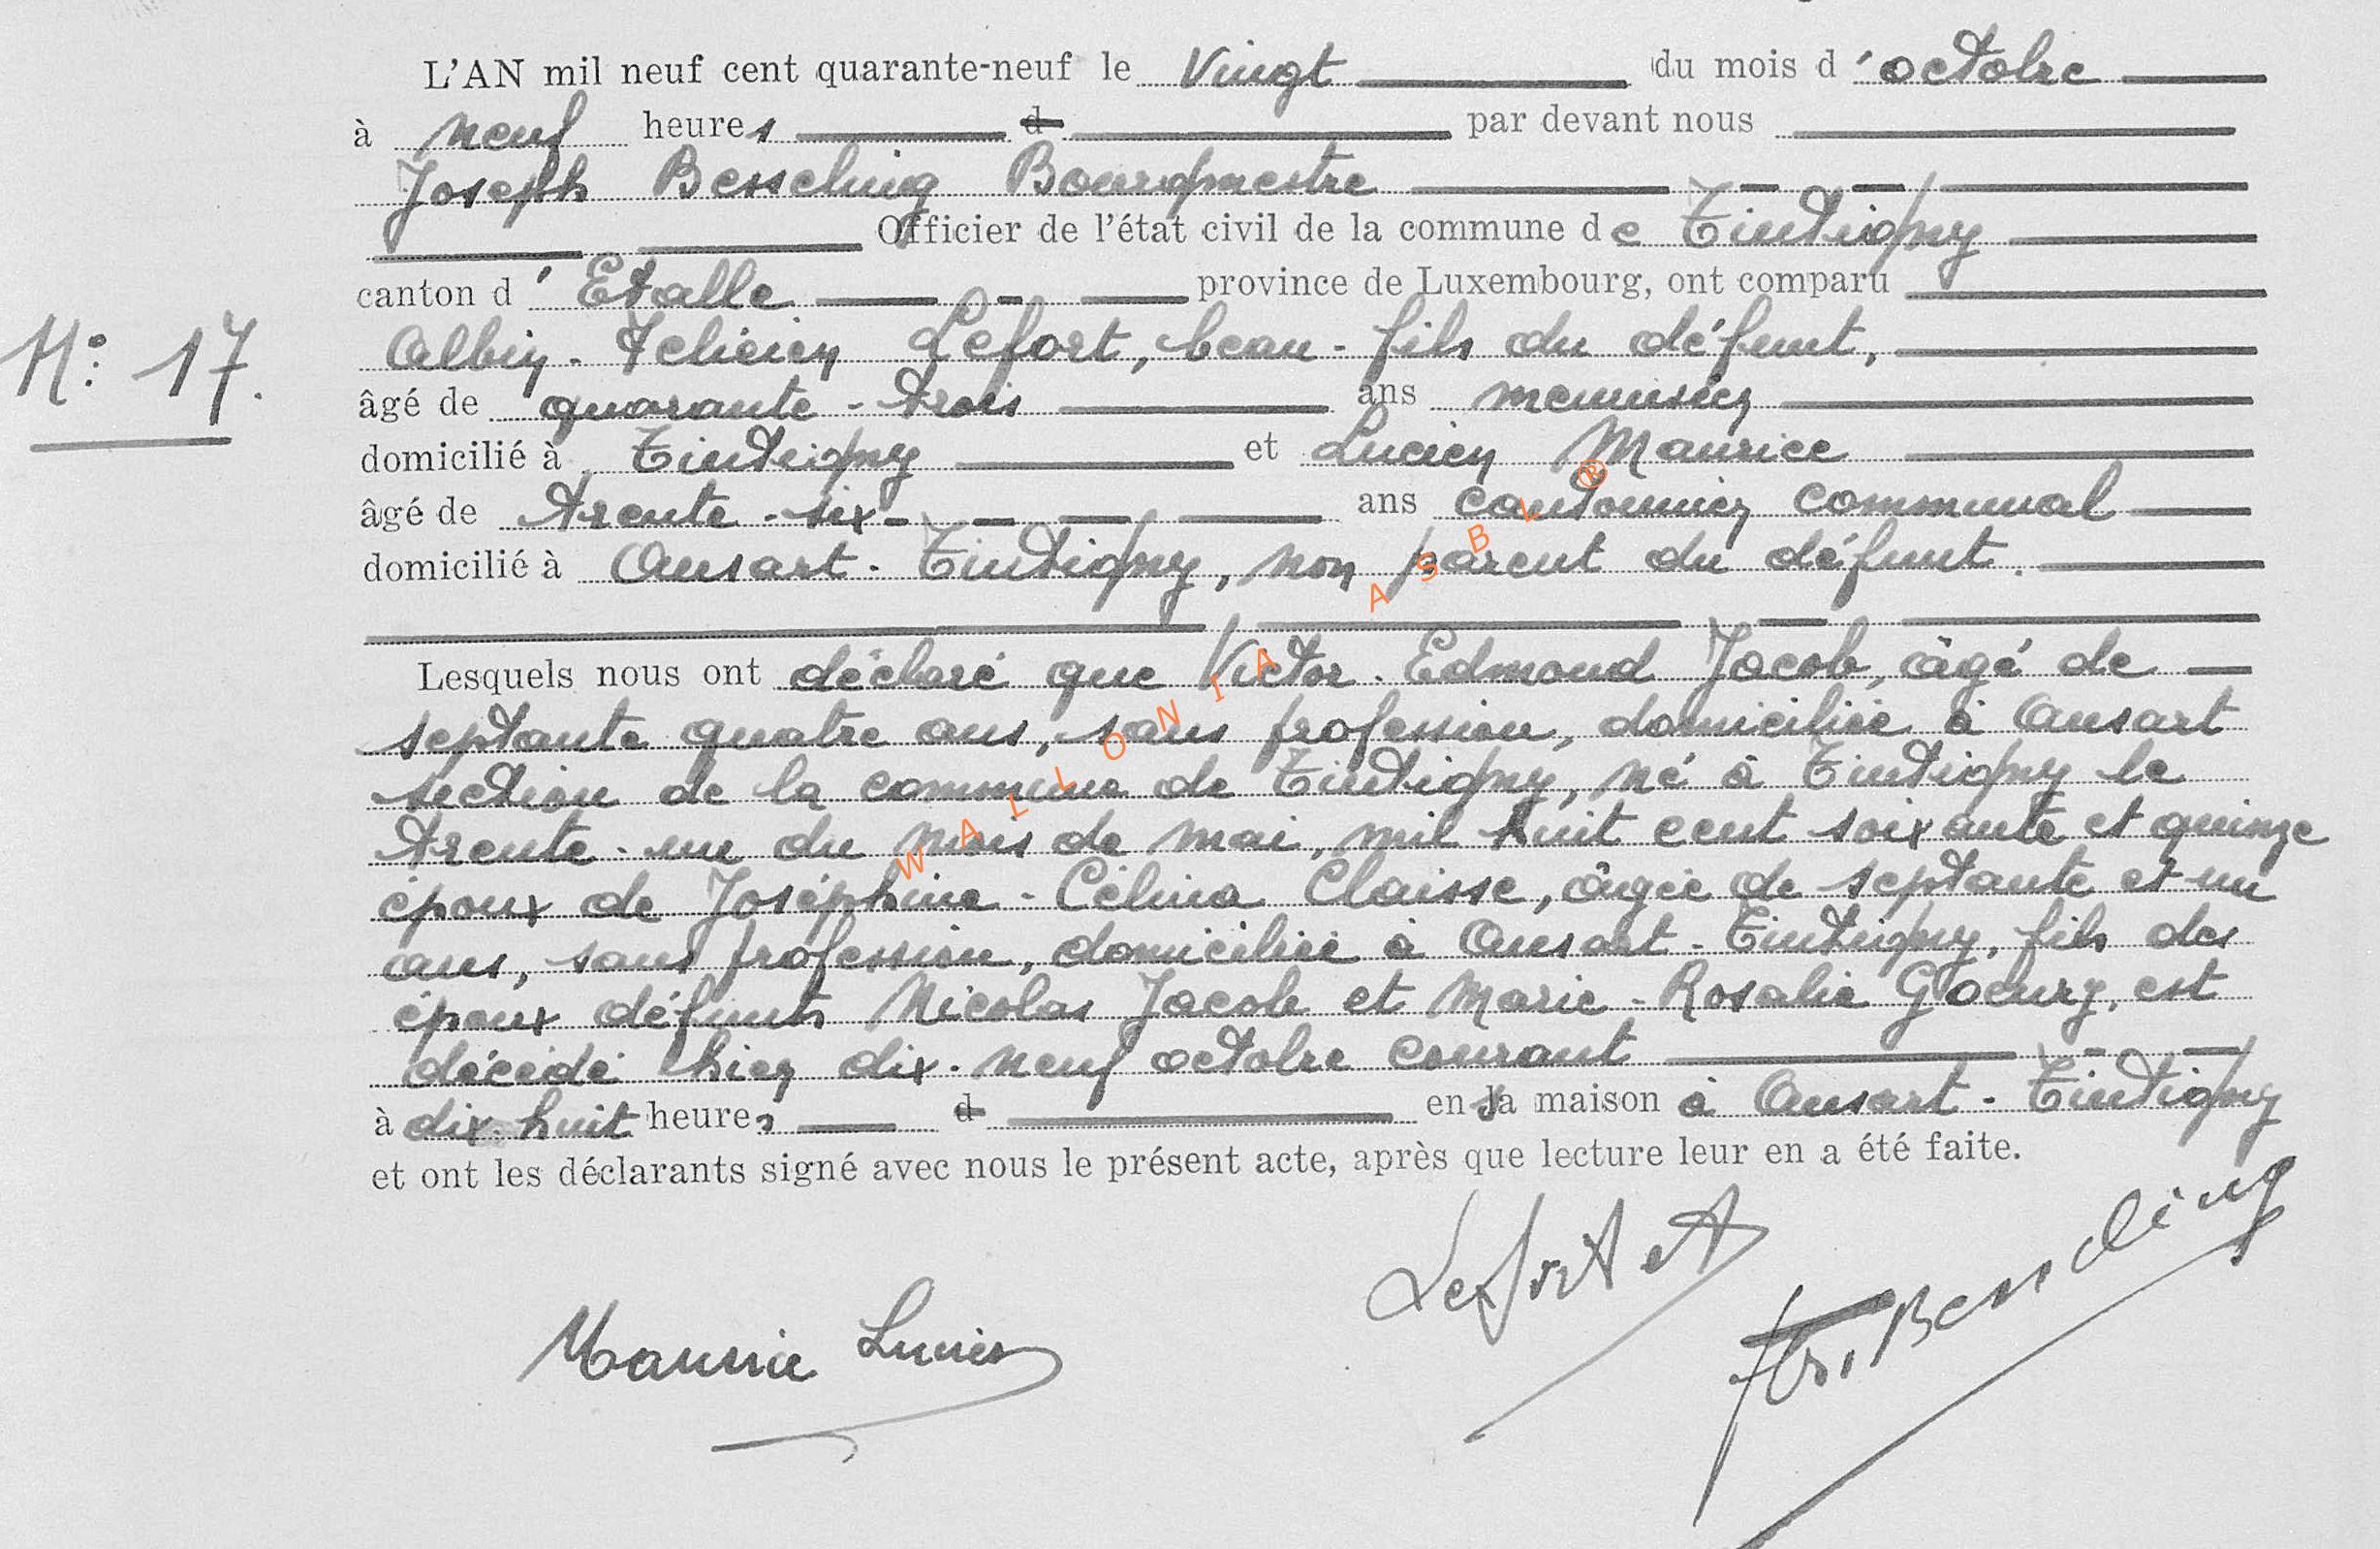 L'AN mil neuf cent quarante-neuf le Vingt du mois d'octobre
à neuf heures d par devant nous
Joseph Bessching Bourgmestre
Officier de l'état civil de la commune de Tintigny
canton d'Etalle province de Luxembourg, ont comparu
N° 17.
Albin-Félicien Lefort, beau-fils du défunt,
âgé de quarante-trois ans menuisier
domicilié à Tintigny et Lucien Maurice
âgé de trente-six ans cantonnier communal
domicilié à Ansart-Tintigny, non parent du défunt.
Lesquels nous ont déclaré que Victor-Edmond Jacob, âgé de
septante quatre ans, sans profession, domicilié à Ansart
section de la commune de Tintigny, né à Tintigny le
trente-un du mois de mai, mil huit cent soixante et quinze
époux de Joséphine-Célina Claisse, âgée de septante et un
ans, sans profession, domiciliée à Ansart-Tintigny, fils des
époux défunts Nicolas Jacob et Marie-Rosalie Goeury, est
décédé hier dix-neuf octobre courant
à dix-huit heures d en sa maison à Ansart-Tintigny
et ont les déclarants signé avec nous le présent acte, après que lecture leur en a été faite.
Lefort A
Jos. Bessching
Maurice Lucien
WALLONIA ASBL ®